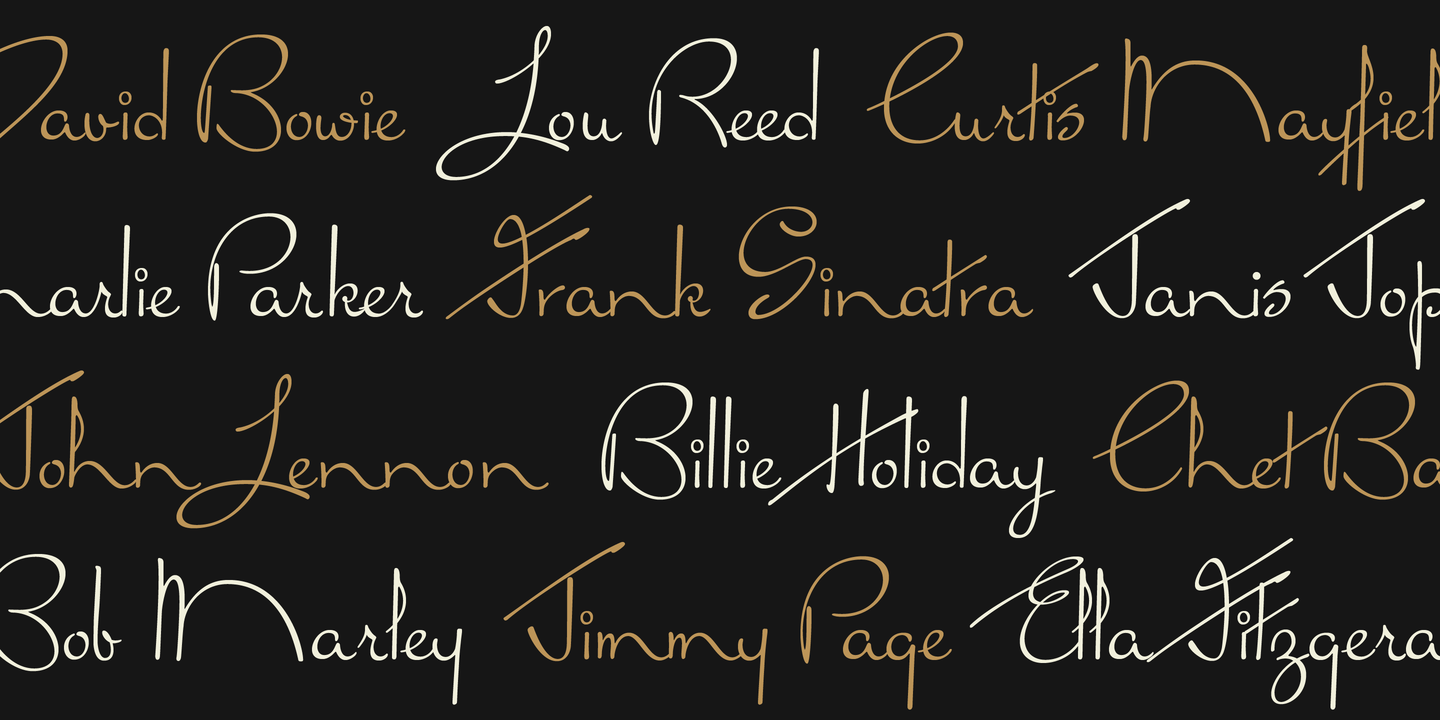 David Bowie Lou Reed Curtis Mayfiel
harlie Parker Frank Sinatra Janis Jop
John Lennon Billie Holiday Chet Ba
Bob Marley Jimmy Page Ella Fitzgera